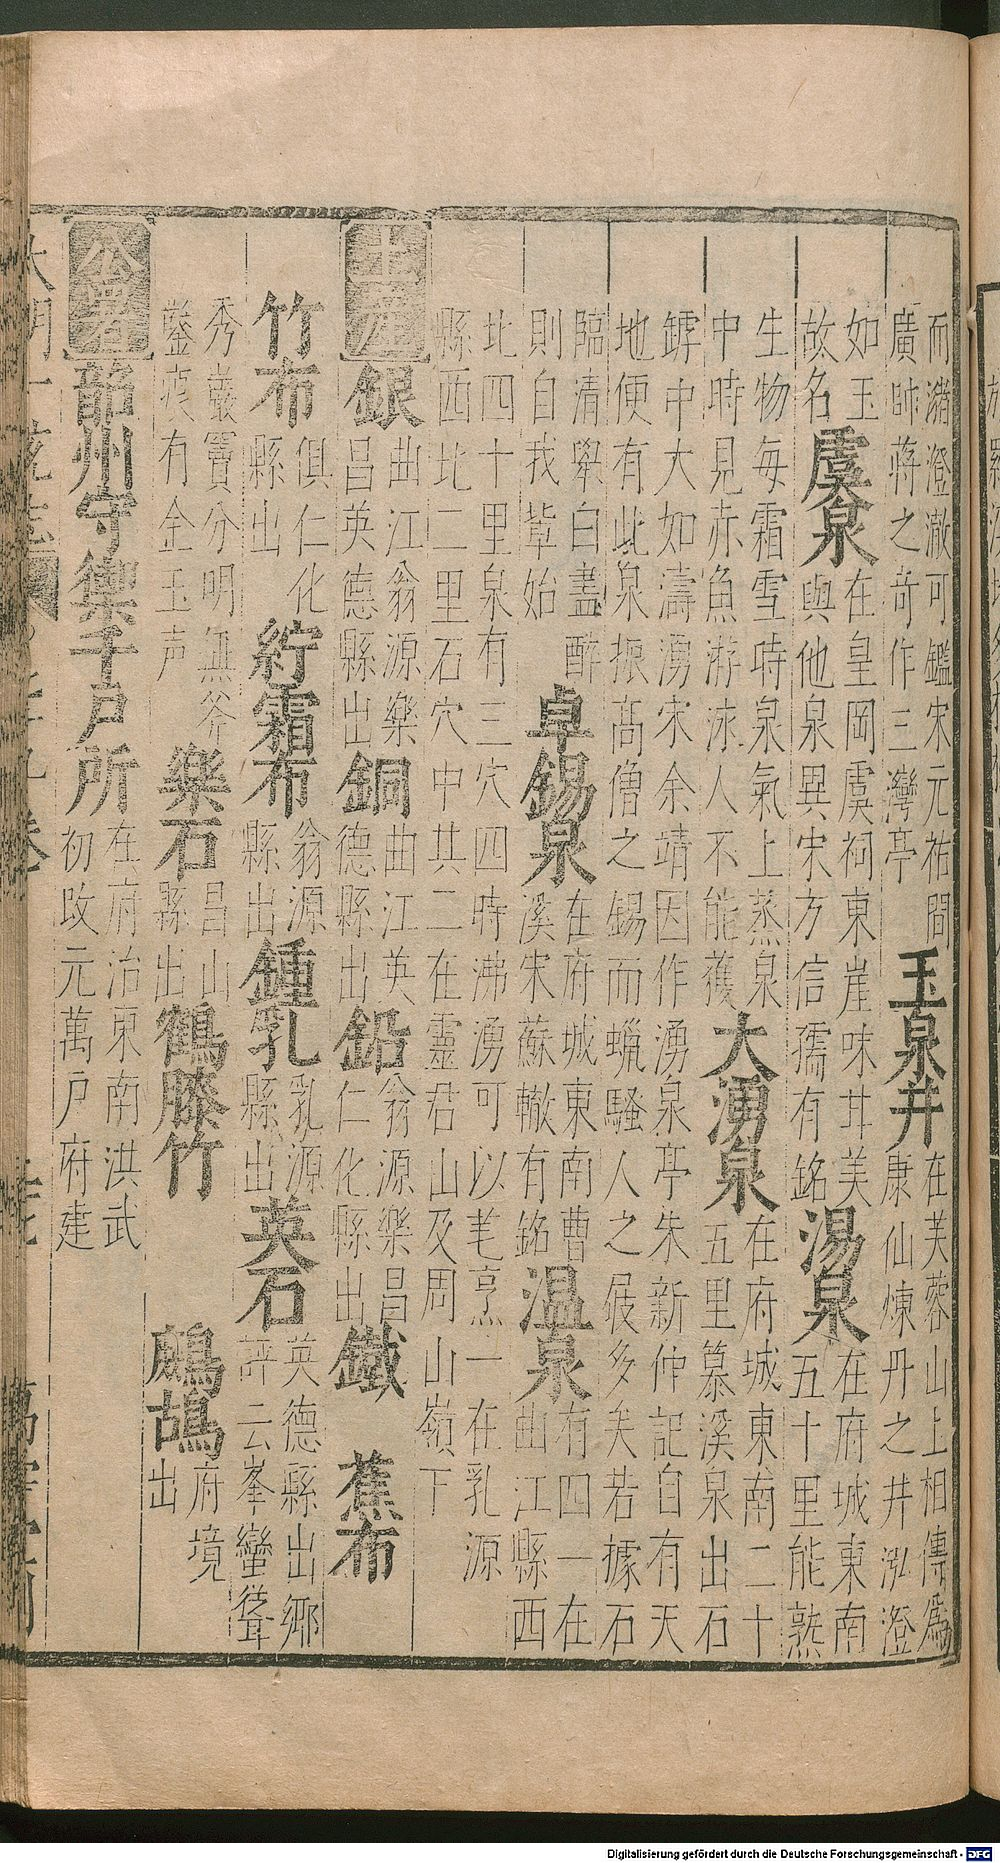 而瀦澄澈可鑑宋元祐間
廣帥蔣之奇作三灣亭
玉泉井
在芙蓉山上相傳爲
康仙煉丹之井泓澄
如玉
故名
虞泉
在皇岡虞祠東崖味甘美
與他泉異宋方信孺有銘
湯泉
在府城東南
五十里能熟
生物每霜雪時泉氣上蒸泉
中時見赤魚游泳人不能獲
大湧泉
在府城東南二十
五里慕溪泉出石
罅中大如濤湧宋余靖因作湧泉亭朱新仲記自有天
地便有此泉振高僧之錫而蠟騷人之屐多矣若據石
臨清舉白盡醉
則自我輩始
卓錫泉
在府城東南曹
溪宋蘇轍有銘
温泉
有四一在
曲江縣西
北四十里泉有三穴四時沸湧可以芼烹一在乳源
縣西北一里石穴中其二在靈君山及周山嶺下
土產
銀
曲江翁源樂
昌英德縣出
銅
曲江英
德縣出
鉛
翁源樂昌
仁化縣出
鐵
蕉布
竹布
俱仁化
縣出
紵霜布
翁源
縣出
鍾乳
乳源
縣出
英石
英德縣出鄉
評云峯巒聳
秀巖竇分明無斧
鑿痕有金玉声
樂石
昌山
縣出
鶴膝竹
鷓鴣
府境
出
公署
韶州守禦千戶所
在府治東南洪武
初改元萬户府建